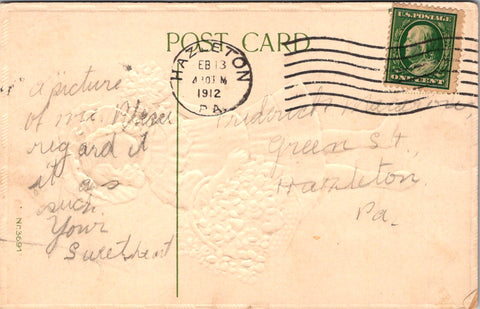 POST CARD.
HAZLETON
FEB 13
1912
PA.
U.S. POSTAGE
ONE CENT
A picture
of me. Please
regard it
it as
such.
Your
Sweetheart
Frederick
Green St,
Hazleton.
Pa.
Nr. 3691